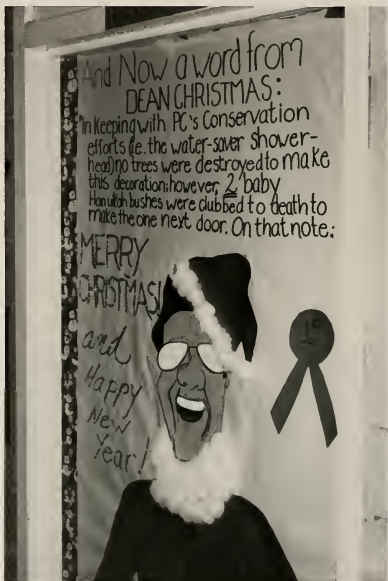 And Now a word from
DEAN CHRISTMAS:
In keeping with PC's Conservation
efforts (ie. the water-saver shower-
head) no trees were destroyed to make
this decoration; however, 2 baby
Hanukah bushes were clubbed to death to
make the one next door. On that note:
MERRY
CHRISTMAS!
and
Happy
New
Year!